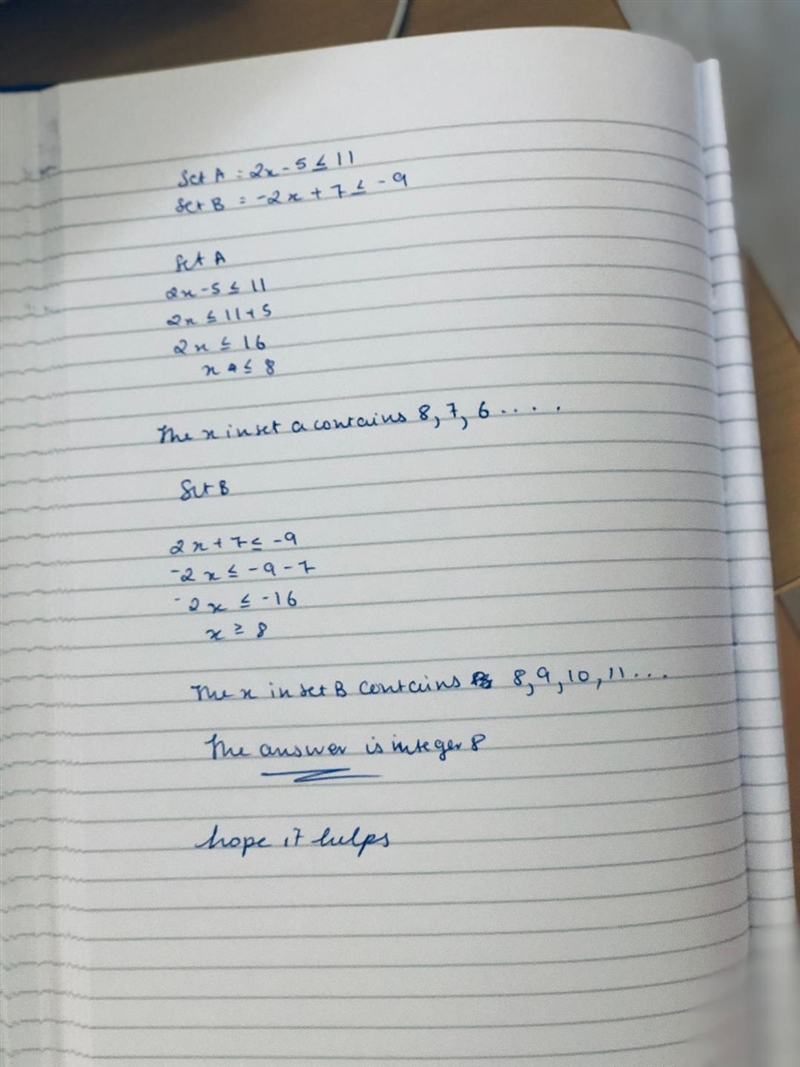 Set A = 2x - 5 ≤ 11
Set B = -2x + 7 ≤ -9
Set A
2x - 5 ≤ 11
2x ≤ 11 + 5
2x ≤ 16
x ≤ 8
The x in set a contains 8, 7, 6 ....
Set B
2x + 7 ≤ -9
-2x ≤ -9 - 7
-2x ≤ -16
x ≥ 8
The x in set B contains 8, 9, 10, 11 ...
The answer is integer 8
hope it helps